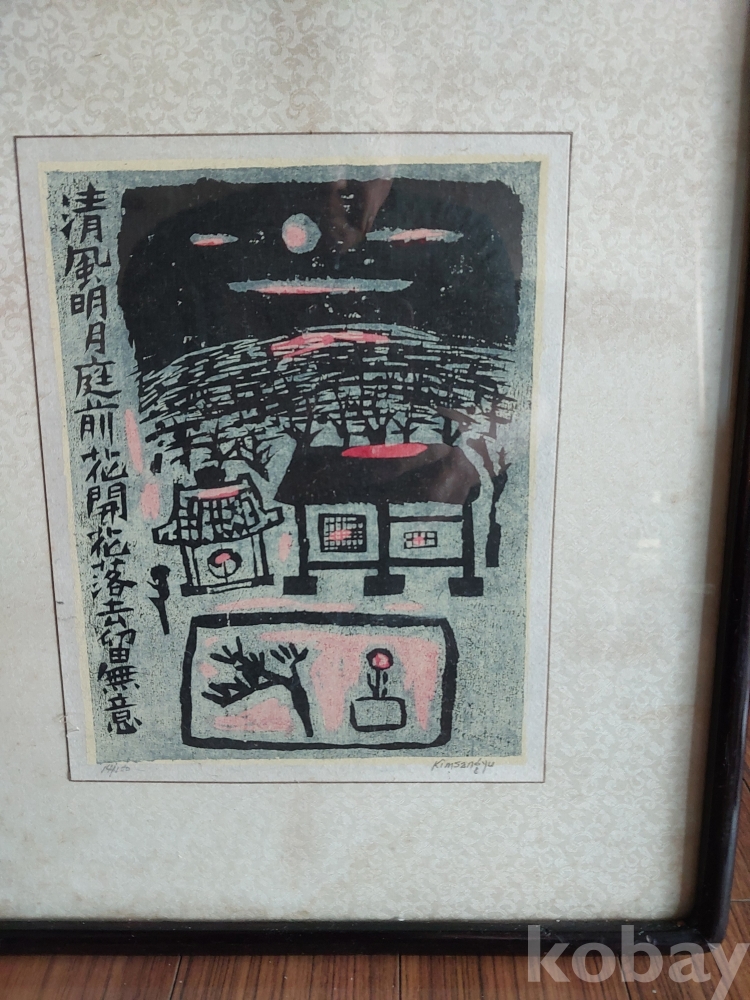 清風明月庭前花開花落去留無意
Kimsangyu
kobay